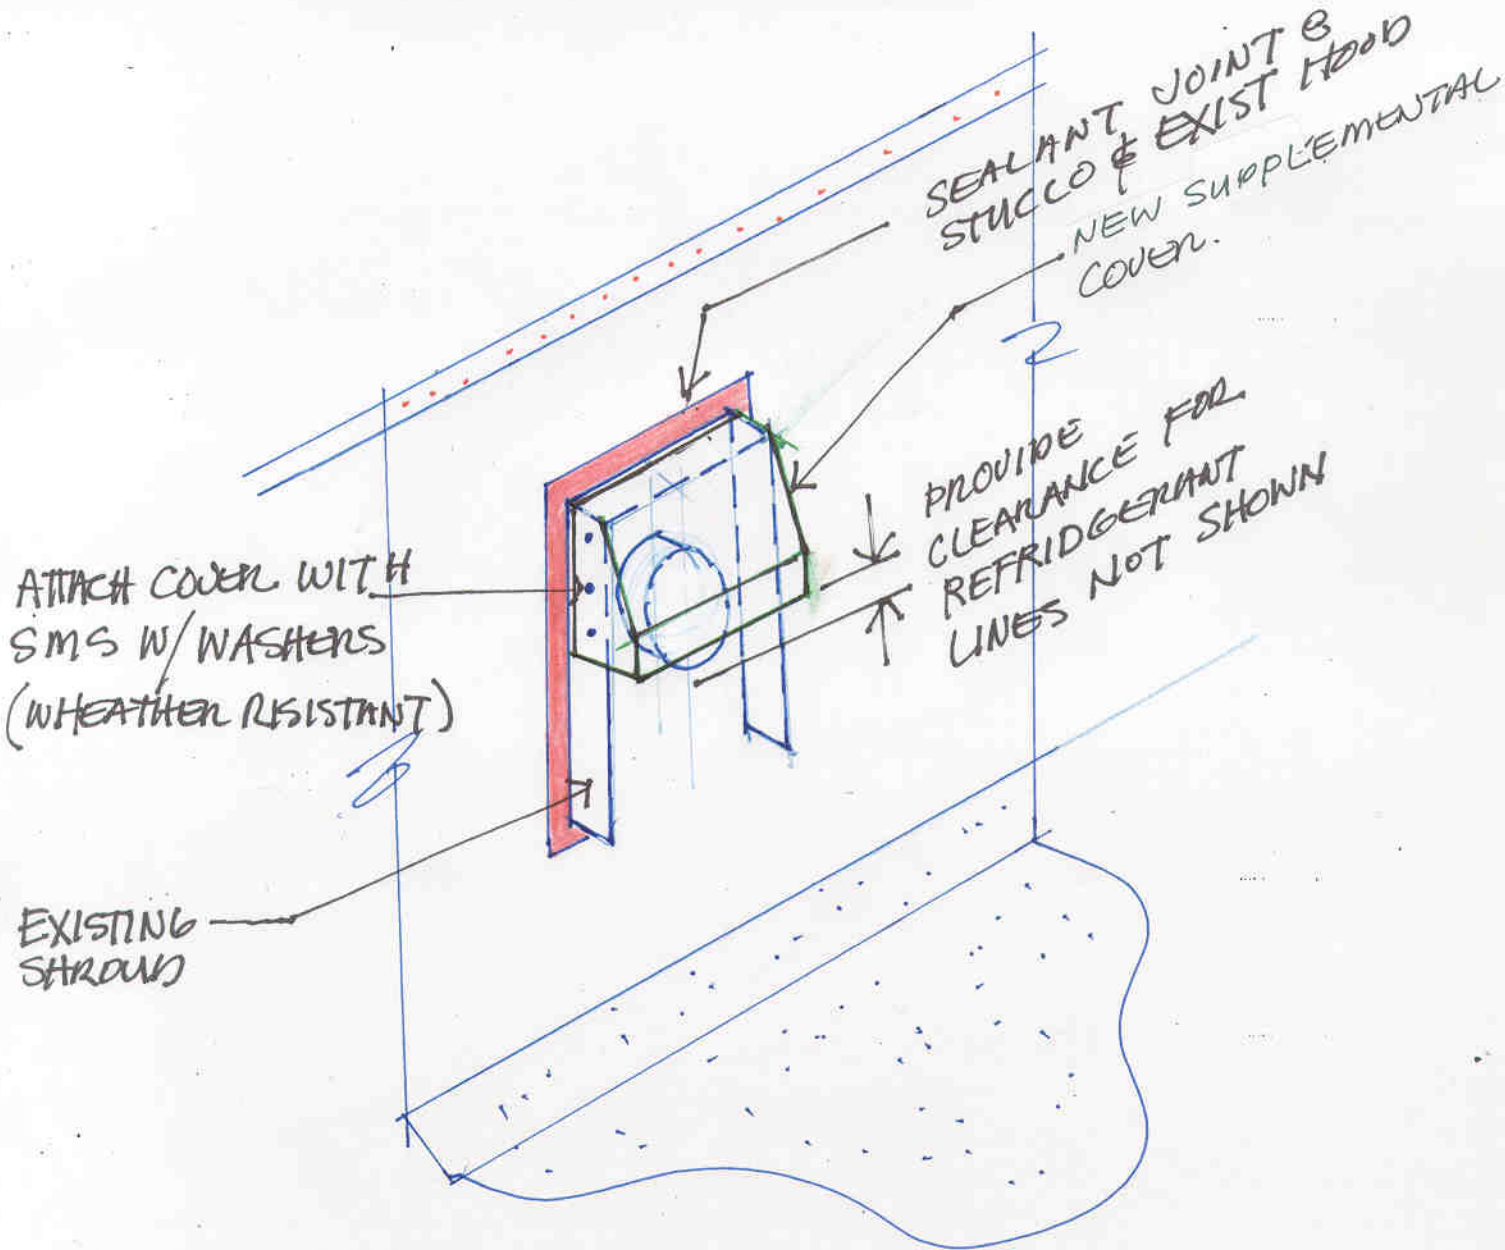 SEALANT JOINT @
STUCCO & EXIST HOOD
NEW SUPPLEMENTAL
COVER.
PROVIDE
CLEARANCE FOR
REFRIDGERANT
LINES NOT SHOWN
ATTACH COVER WITH
SMS W/ WASHERS
(WHEATHER RISISTANT)
EXISTING
SHROUD